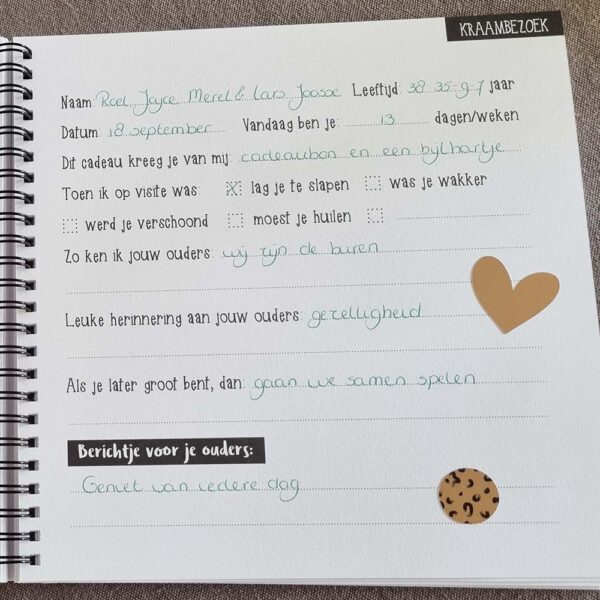 KRAAMBEZOEK
Naam: Roel, Joyce, Merel & Lars Joosse Leeftijd: 38 35 9 7 jaar
Datum: 18 september Vandaag ben je: 13 dagen/weken
Dit cadeau kreeg je van mij: cadeaubon en een bijtbartje
Toen ik op visite was: x lag je te slapen was je wakker
werd je verschoond moest je huilen
Zo ken ik jouw ouders: wij zijn de buren
Leuke herinnering aan jouw ouders: gezelligheid
Als je later groot bent, dan: gaan we samen spelen
Berichtje voor je ouders:
Geniet van iedere dag